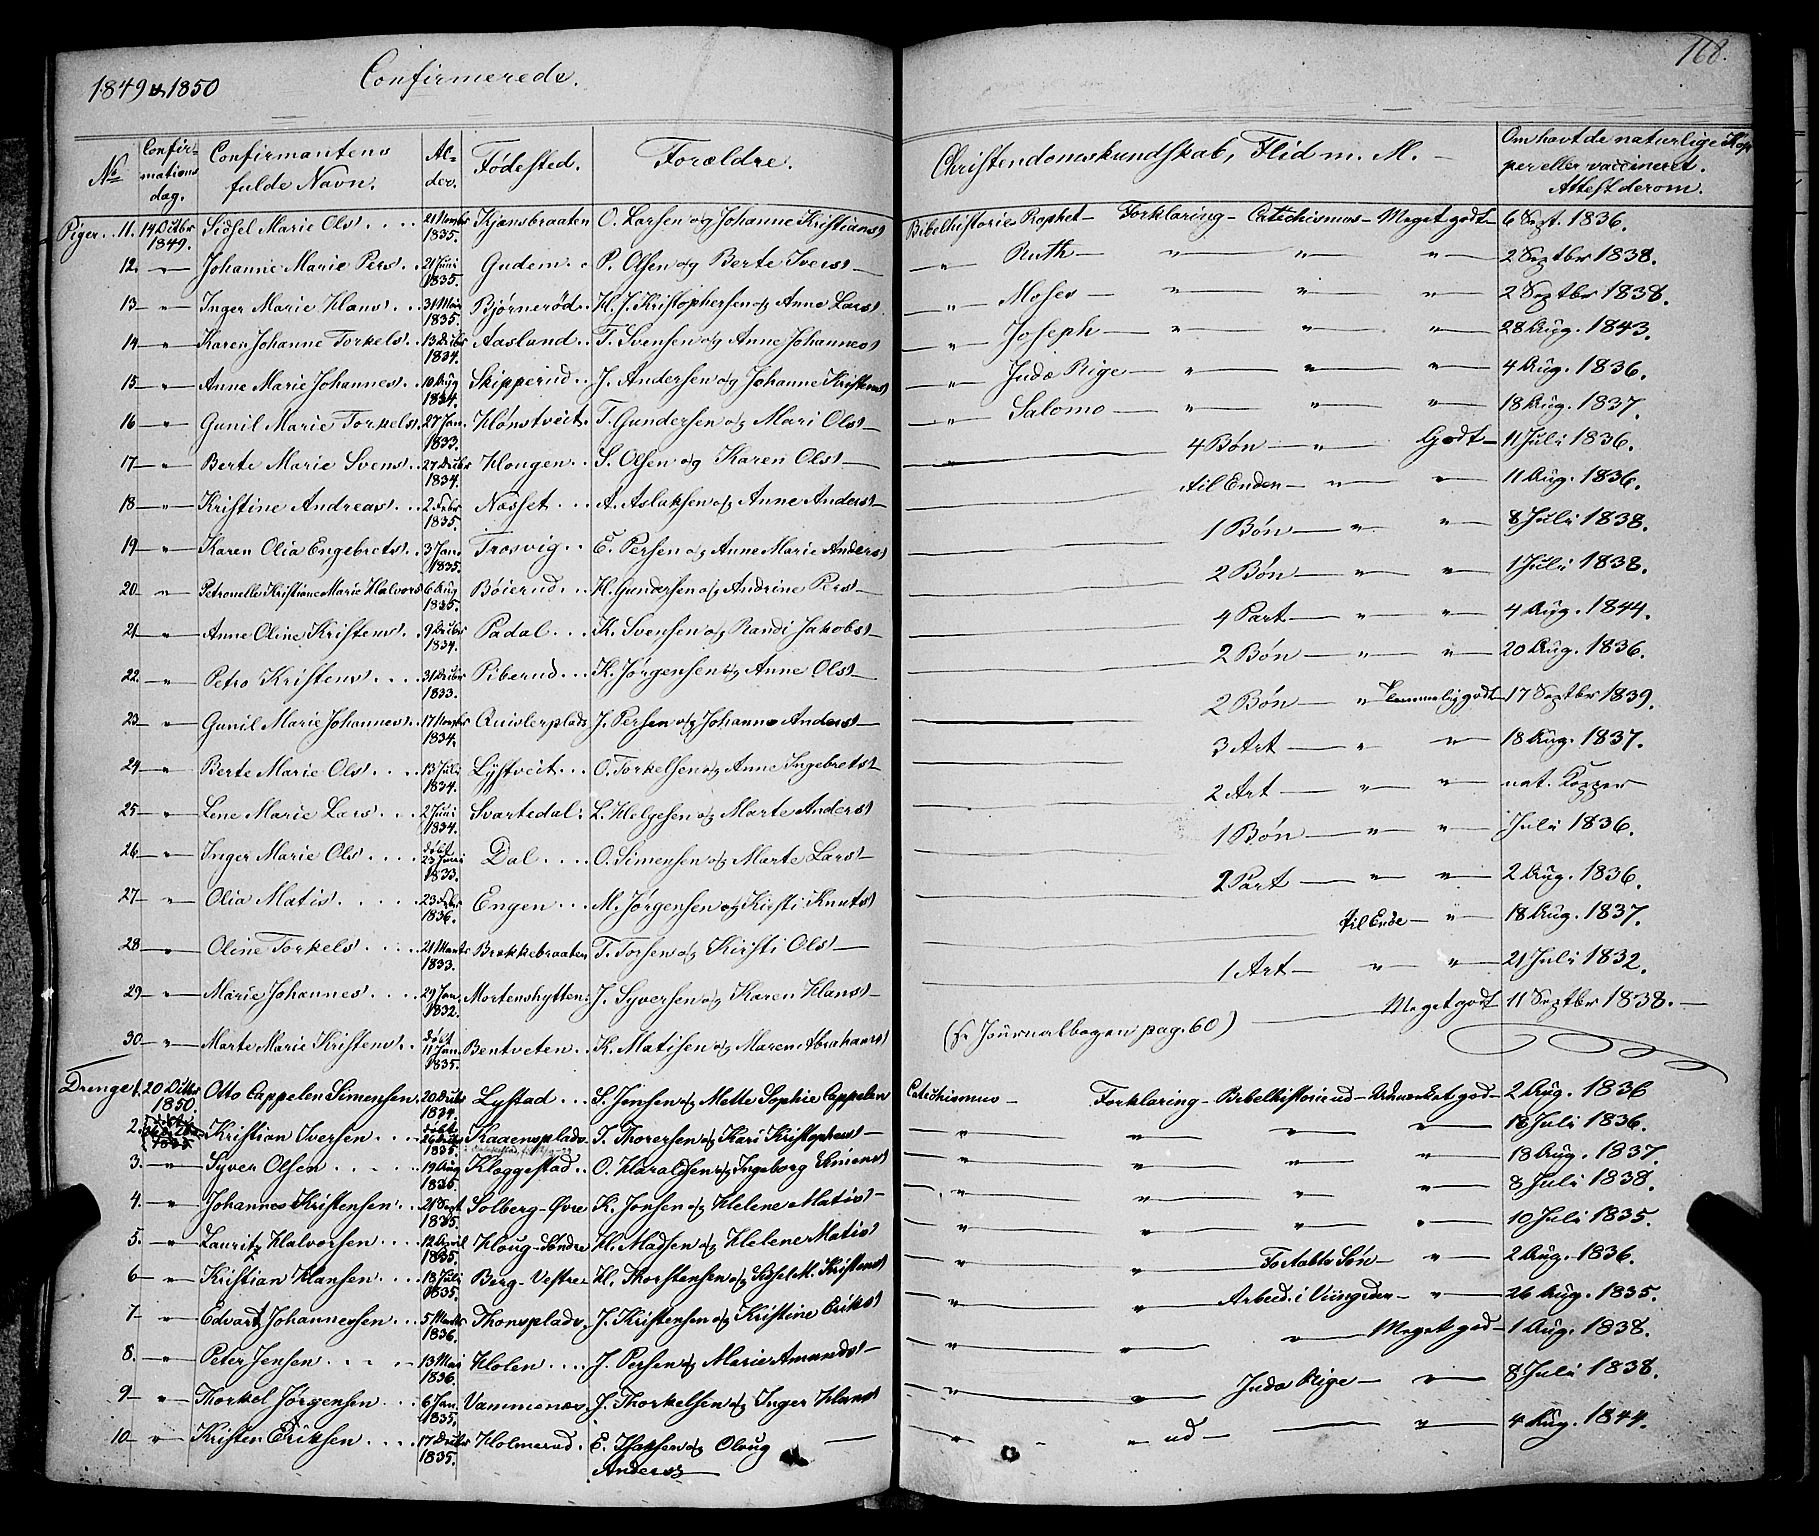 1849 & 1850 Confirmerede. 168.
No. Confirmations dag. Confirmantens fulde Navn. Alder. Fødested. Forældre. Christendomskundskab, Flid m. M. Om havt de naturlige Kopper eller vaccineret. Attest derom.
Piger. 11. 14 Octbr 1849. Sidsel Marie Olsd. 21 Novbr 1835. Kjønsbraaten O. Larsen og Johanne Kristiansd Bibelhistorie Prophet Forklaring Catichismus Meget godt 6 Sept. 1836.
12. " Johanne Marie Persd. 21 Juni 1835. Gudem P. Olsen og Berte Iversd " Ruth " " " 2 Septbr 1838.
13 " Inger Marie Hansd. 31 Mai 1835. Bjørnerød H. J. Kristophersen og Anne Larsd. " Moses " " " 2 Septbr 1838.
14 " Karen Johanne Torkelsd. 13 Decbr 1834. Aasland T. Svensen og Anne Johannesd " Joseph " " " 28 Aug. 1843.
15 " Anne Marie Johannesd. 10 Aug 1834. Skipperud J. Andersen og Johanne Kristensd " Judæ Rige " " " 4 Aug. 1836.
16 " Gunil Marie Torkelsd. 27 Jan. 1833. Hønstveit T. Gundersen og Mari Olsd " Salomo " " " 18 Aug. 1837.
17 " Berte Marie Svensd. 27 Decbr 1834. Hougen S. Olsen og Karen Olsd " 4 Bøn " Godt 11 Juli 1836.
18 " Kristine Andreasd 2 Febr 1835. Næsset A. Aslaksen og Anne Andersd til Enden " " 11 Aug. 1836.
19 " Karen Olia Engebretsd. 3 Jan. 1835. Trosvig E. Persen og Anne Marie Andersd 1 Bøn " " 8 Juli 1838.
20 " Petronelle Kristiane Marie Halvorsd 6 Aug 1835. Bøierud H. Gundersen og Andrine Persd 2 Bøn " " 1 Juli 1838.
21 " Anne Oline Kristensd. 9 Decbr 1834. Padal K. Svensen og Randi Jakobsd 4 Part " " 4 Aug. 1844.
22 " Petro Kristensd 31 Decbr 1833. Piberud K. Jørgensen og Anne Olsd 2 Bøn " " 20 Aug. 1836.
23 " Gunil Marie Johannesd. 17 Novbr 1834. Quislerplads J. Persen og Johanne Andersd 2 Bøn " Temmelig godt 17 Septbr 1839.
24 " Berte Marie Olsd. 13 Juli 1834. Lystveit O. Torkelsen og Anne Ingebretsd 3 Art " " 18 Aug. 1837.
25 " Lene Marie Larsd 2 Juni 1834. Svartedal L. Helgesen og Marte Andersd 2 Art " " nat. Kopper
26 " Inger Marie Olsd. døbt 23 Juni 1833. Dal O. Simensen og Marte Larsd 1 Bøn " " Juli 1836.
27 " Olia Matisd. 23 Febr 1836. Engen M. Jørgensen og Kirsti Knutsd 2 Part " " 2 Aug. 1836.
28 " Oline Torkelsd 21 Marts 1833. Brekkebraaten T. Torsen og Kirsti Olsd til Ende " 18 Aug. 1837.
29 " Marie Johannesd 29 Jan. 1832. Mortenshytten J. Syversen og Karen Hansd 1 Art " " 21 Juli 1832.
30 " Marte Marie Kristensd. døbt 11 Jan. 1835. Bentveten K. Matisen og Maren Abrahamsd (s. Journalbogen pag. 60) Meget godt 11 Septbr 1838.
Drenge 1. 20 Octbr 1850. Otto Cappelen Simensen. 20 Decbr 1834. Lystad S. Jensen og Mette Sophie Cappelen Catichismus Forklaring Bibelhistorie ud Udmærket god 2 Aug. 1836
2. Kristian Iversen 1835. Kaaensplads I. Thorersen og Kari Kristophersd " " " " 18 Juli 1836.
3. " Syver Olsen 19 Aug 1835. Kloggestad O. Haraldsen og Ingeborg Simensd " " " " 18 Aug. 1837.
4. " Johannes Kristensen 21 Sept 1835. Solberg-Øvre K. Jonsen og Helene Matisd " " " " 8 Juli 1838.
5. " Lauritz Halvorsen 12 April 1835. Houg-Søndre H. Madsen og Helene Matisd " " " " 10 Juli 1835.
6 " Kristian Hansen 18 Juli 1835. Berg-Vestre H. Thorstensen og Sidsel M. Kristensd " " Fortabte Søn " 2 Aug. 1836.
7 " Edvart Johannessen 5 Marts 1836. Thonsplads J. Kristensen og Kristine Eriksd " " Arbeid. i Viingaarden " 26 Aug. 1835.
8. " Peter Jensen 13 Mai 1836. Holen J. Persen og Marie Amundsd " " " Meget god 1 Aug. 1838.
9 " Thorkel Jørgensen 6 Jan. 1835. Vammenæs J. Thorkelsen og Inger Hansd " " Juda Rige " 8 Juli 1838.
10 " Kristen Eriksen 17 Decbr 1835. Holmerud E. Isaksen og Oloug Andersd " " ud " 4 Aug. 1844.